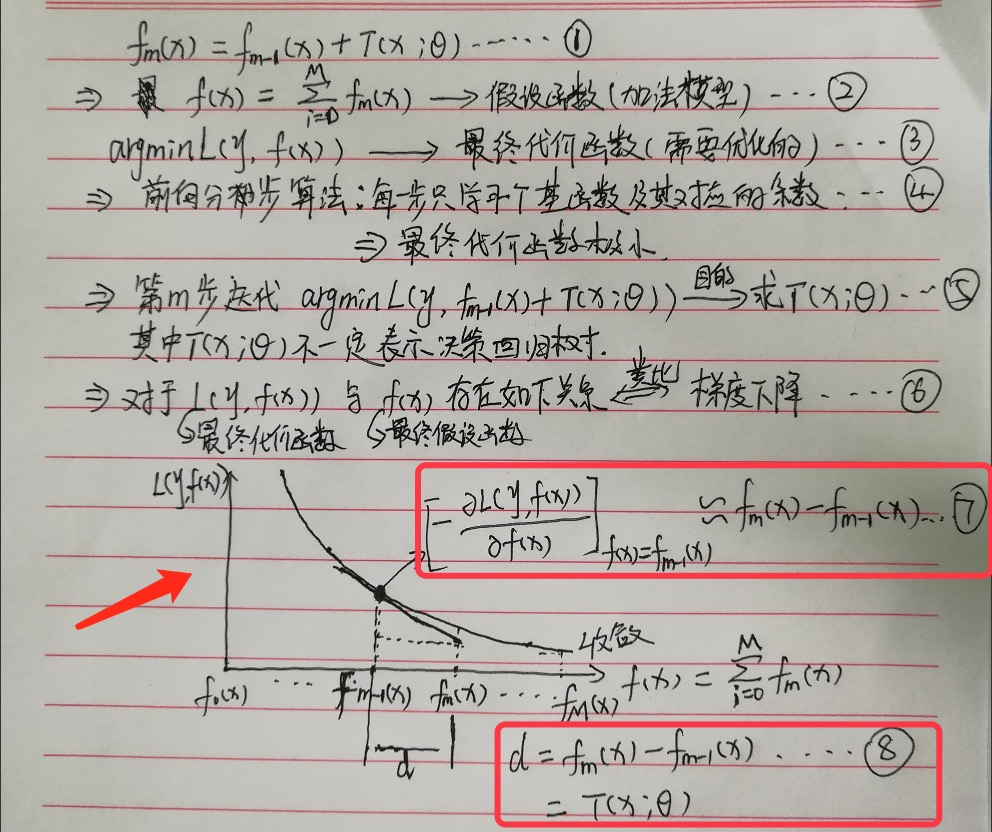 fm(x) = fm-1(x) + T(x;θ) ...... ①
⇒ 最 f(x) = M∑i=0 fm(x) → 假设函数(加法模型) ... ②
argmin L(y, f(x)) → 最终代价函数(需要优化的) ... ③
⇒ 前向分步算法:每一步只学习一个基函数及其对应的系数 ... ④
⇒ 最终代价函数极小.
⇒ 第m步迭代 argmin L(y, fm-1(x) + T(x;θ)) 目的→ 求T(x;θ) ... ⑤
其中T(x;θ)不一定表示决策回归树.
⇒ 对于 L(y, f(x)) 与 f(x) 存在如下关系 ⇐类比 梯度下降 ..... ⑥
↳最终代价函数 ↳最终假设函数
L(y,f(x))
[-∂L(y,f(x))/∂f(x)]f(x)=fm-1(x) ≈ fm(x) - fm-1(x) ... ⑦
收敛
f0(x) .... fm-1(x) fm(x) ..... fM(x) f(x) = M∑i=0 fm(x)
d
d = fm(x) - fm-1(x) ..... ⑧
= T(x;θ)